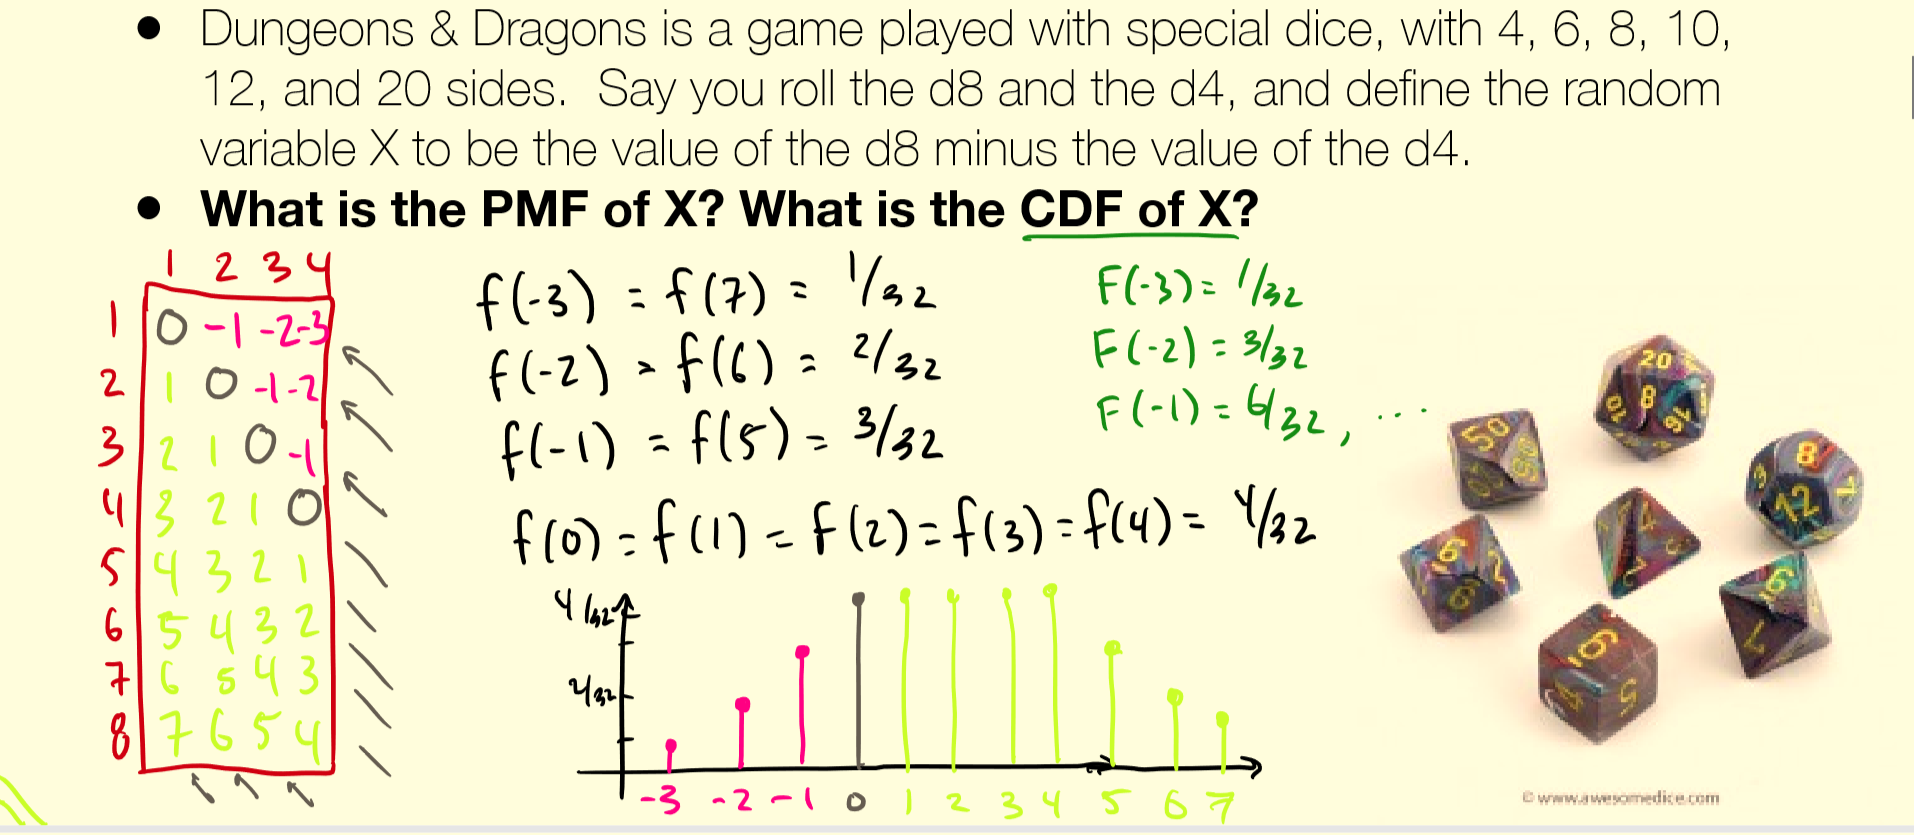 • Dungeons & Dragons is a game played with special dice, with 4, 6, 8, 10,
12, and 20 sides. Say you roll the d8 and the d4, and define the random
variable X to be the value of the d8 minus the value of the d4.
• What is the PMF of X? What is the CDF of X?
1 2 3 4
1 0 -1 -2 -3
2 1 0 -1 -2
3 2 1 0 -1
4 3 2 1 0
5 4 3 2 1
6 5 4 3 2
7 6 5 4 3
8 7 6 5 4
f(-3) = f(7) = 1/32
f(-2) = f(6) = 2/32
f(-1) = f(5) = 3/32
f(0) = f(1) = f(2) = f(3) = f(4) = 4/32
F(-3) = 1/32
F(-2) = 3/32
F(-1) = 6/32, ...
4/32
2/32
-3 -2 -1 0 1 2 3 4 5 6 7
20
8
10
16
50
8
12
6
6
6
5
© www.awesomedice.com